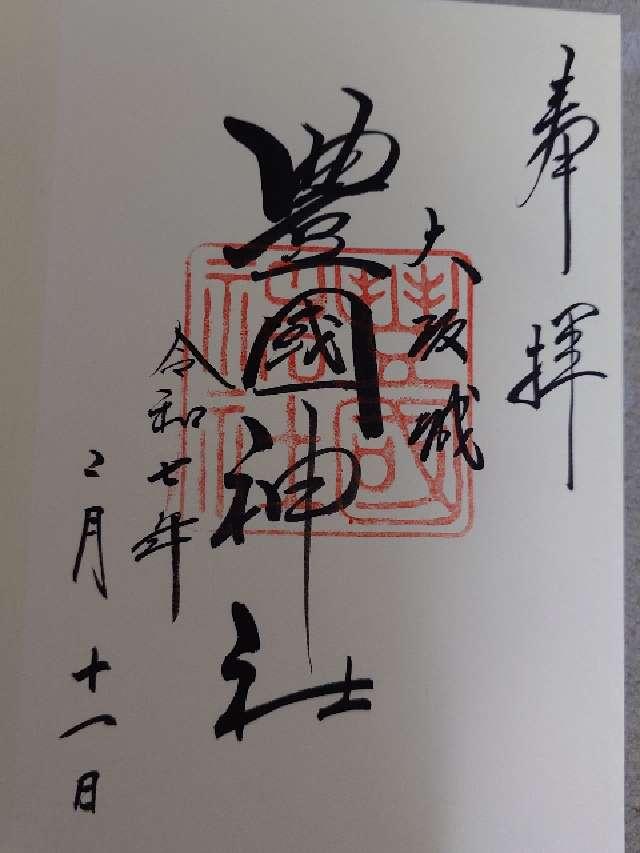 奉拝
大阪城
豊國神社
令和七年
二月十一日